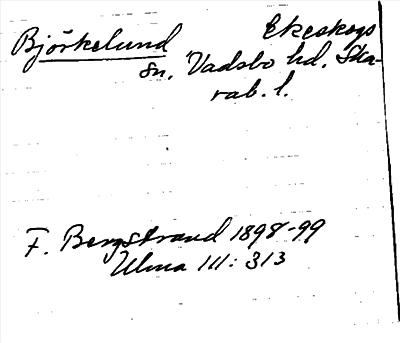 Björkelund Ekeskogs
sn. Vadsbo hd. Ska-
rab. l.
F. Bergstrand 1898-99
Ulma 111: 313